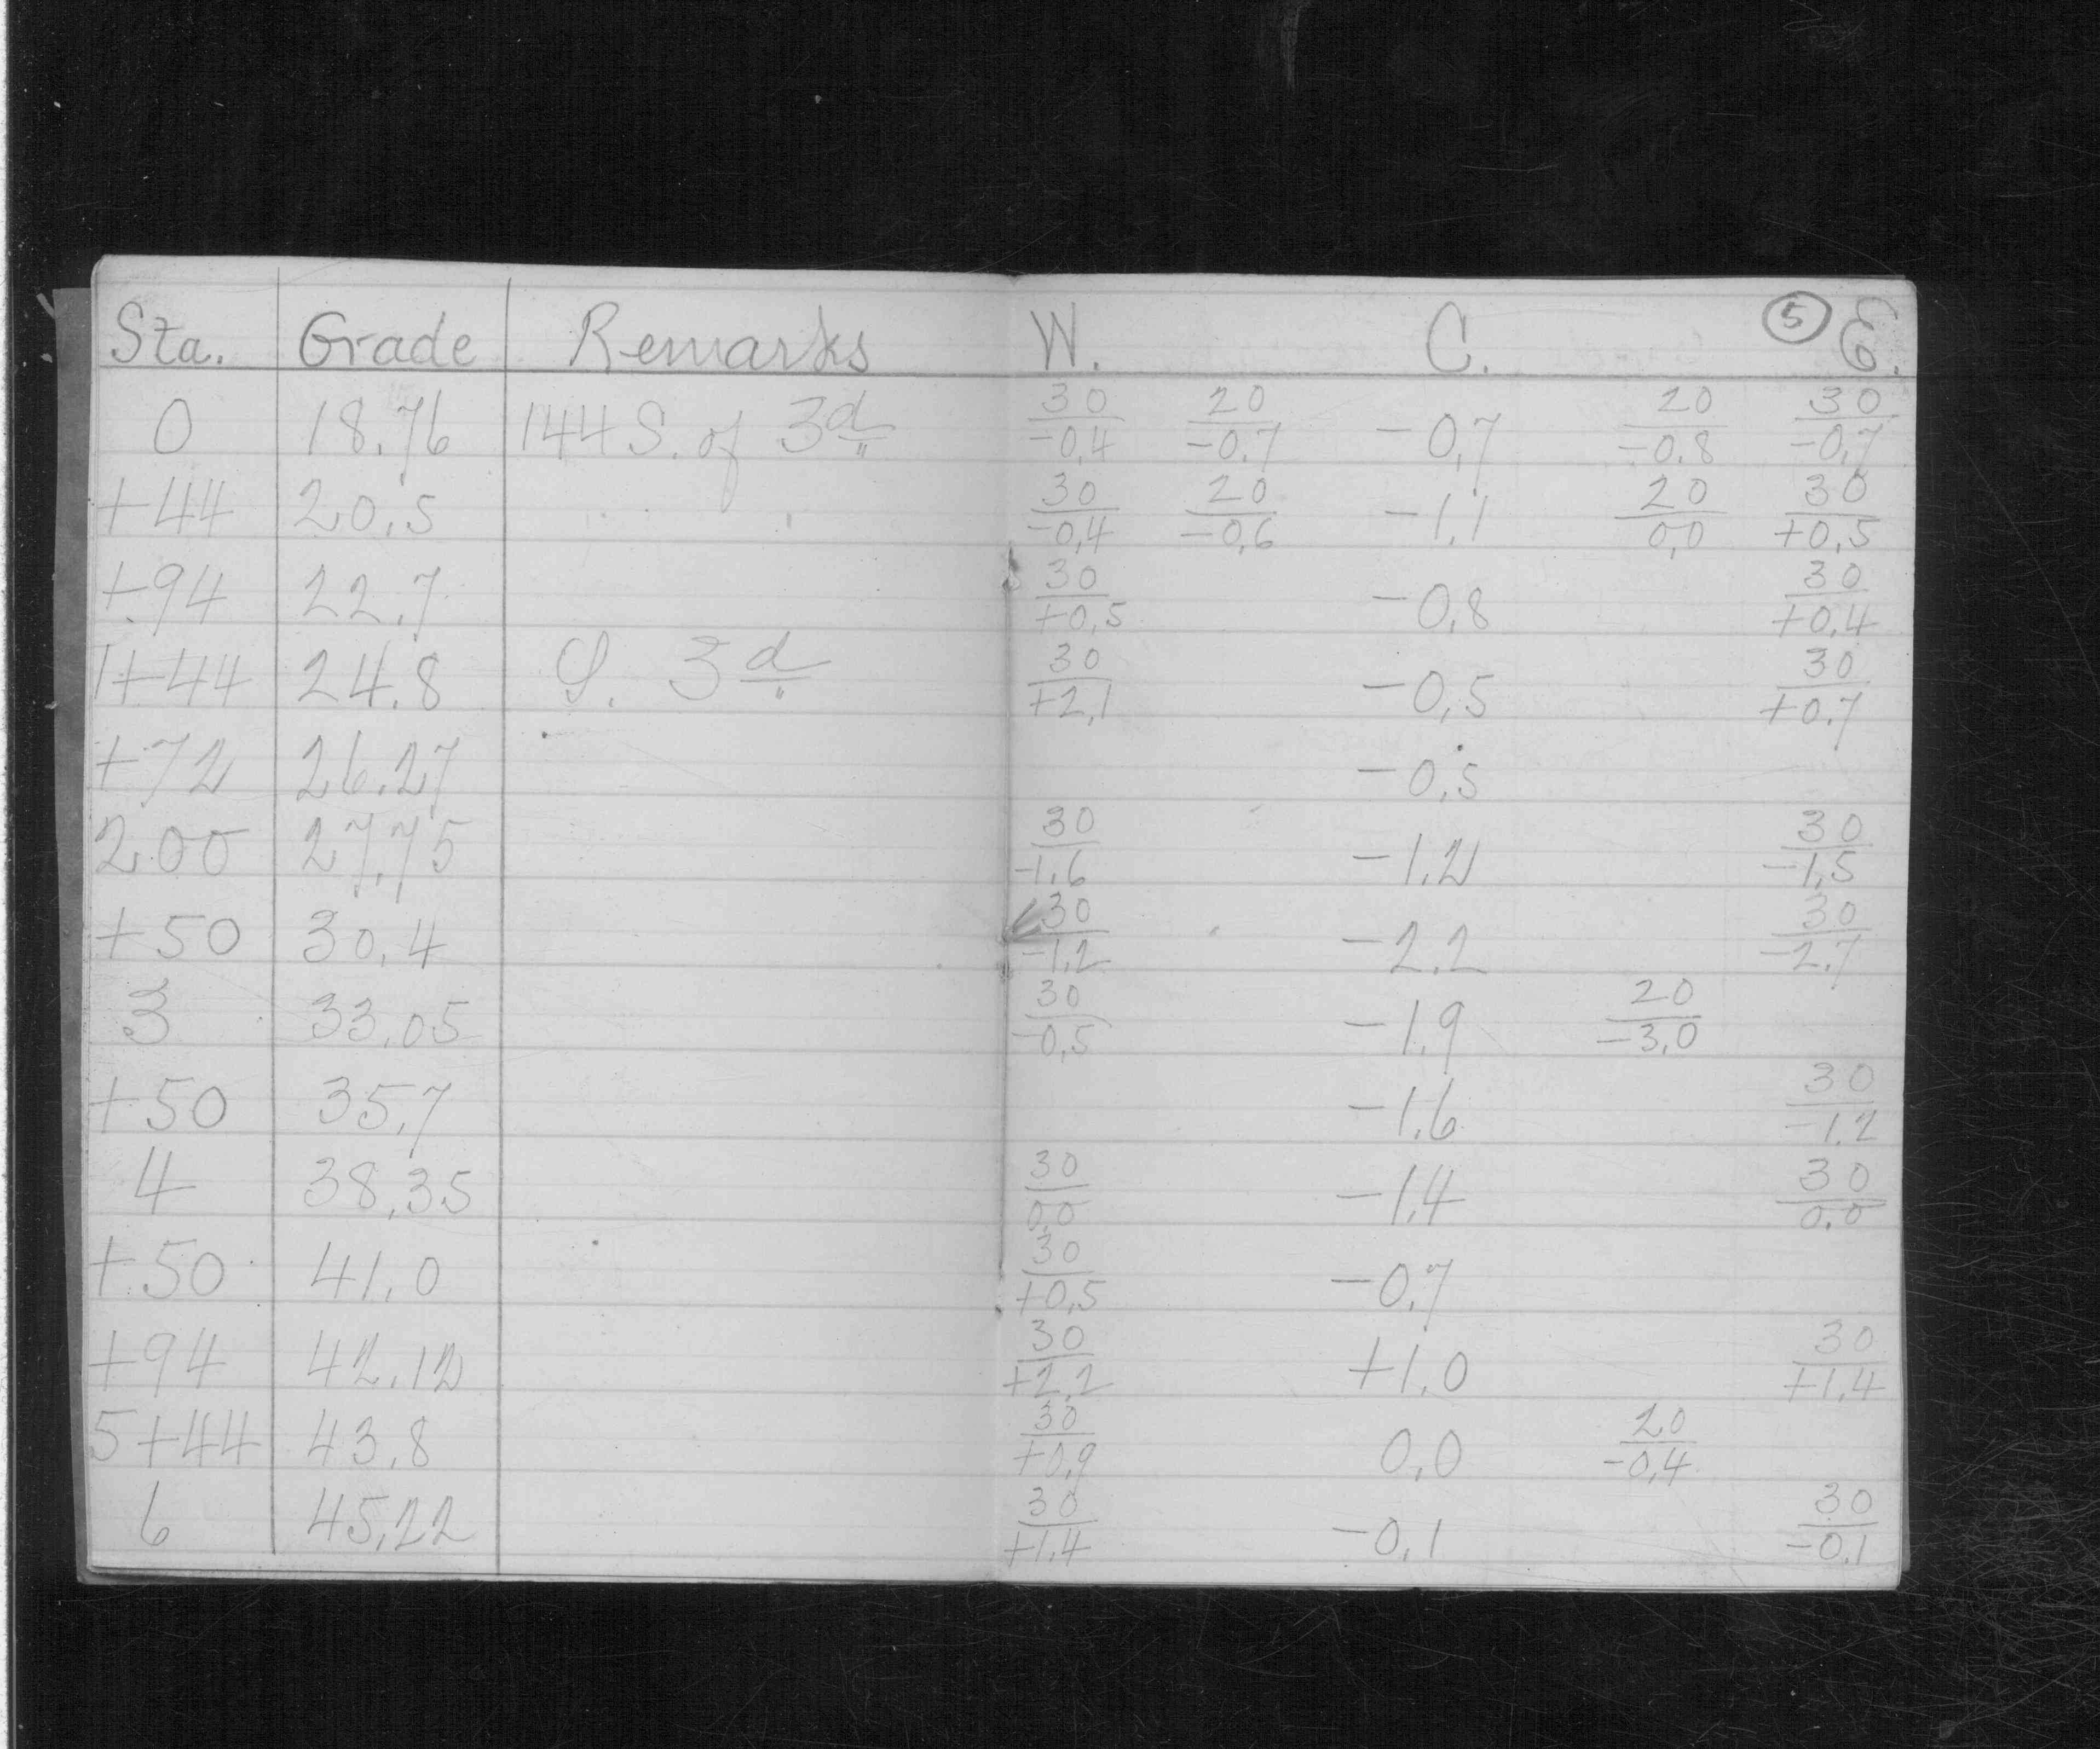 Sta. Grade Remarks W. C. 5 E.
0 18.76 144 S. of 3d 30/-0.4 20/-0.7 -0.7 20/-0.8 30/-0.7
+44 20.5 30/-0.4 20/-0.6 -1.1 20/0.0 30/+0.5
+94 22.7 30/+0.5 -0.8 30/+0.4
1+44 24.8 S. 3d 30/+2.1 -0.5 30/+0.7
+72 26.27 -0.5
200 27.75 30/-1.6 -1.2 30/-1.5
+50 30.4 30/-1.2 -2.2 30/-2.7
3 33.05 30/-0.5 -1.9 20/-3.0
+50 35.7 -1.6 30/-1.2
4 38.35 30/0.0 -1.4 30/0.0
+50 41.0 30/+0.5 -0.7
+94 42.12 30/+2.2 +1.0 30/+1.4
5+44 43.8 30/+0.9 0.0 20/-0.4
6 45.22 30/+1.4 -0.1 30/-0.1